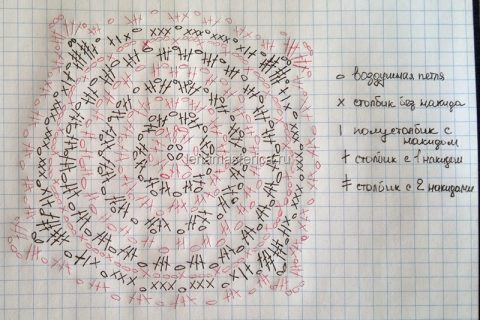 o воздушная петля
x столбик без накида
| полустолбик с
накидом
† столбик с 1 накидом
ǂ столбик с 2 накидами
lenamasterica.ru